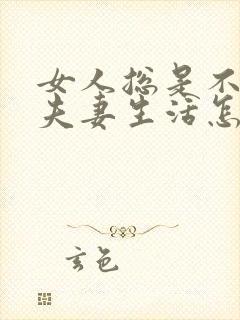 女人总是不
夫妻生活怎
玄色